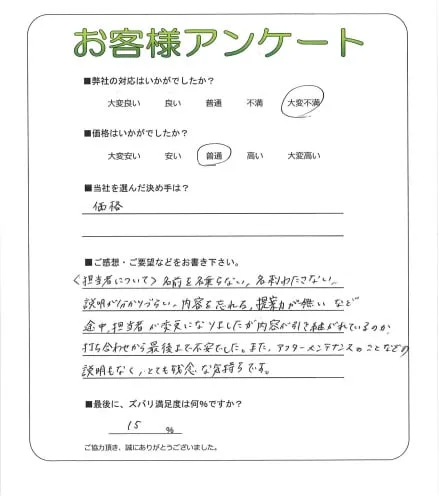 お客様アンケート
■弊社の対応はいかがでしたか？
大変良い 良い 普通 不満 大変不満
■価格はいかがでしたか？
大変安い 安い 普通 高い 大変高い
■当社を選んだ決め手は？
価格
■ご感想・ご要望などをお書き下さい。
〈担当者について〉名前を名乗らない、名刺わたさない、
説明が分かりづらい、内容を忘れる、提案力が無い など
途中、担当者が変更になりましたが内容が引き継がれているのか、
打ち合わせから最後まで不安でした。また、アフターメンテナンスのことなどの
説明もなく、とても残念な気持ちです。
■最後に、ズバリ満足度は何％ですか？
15 ％
ご協力頂き、誠にありがとうございました。